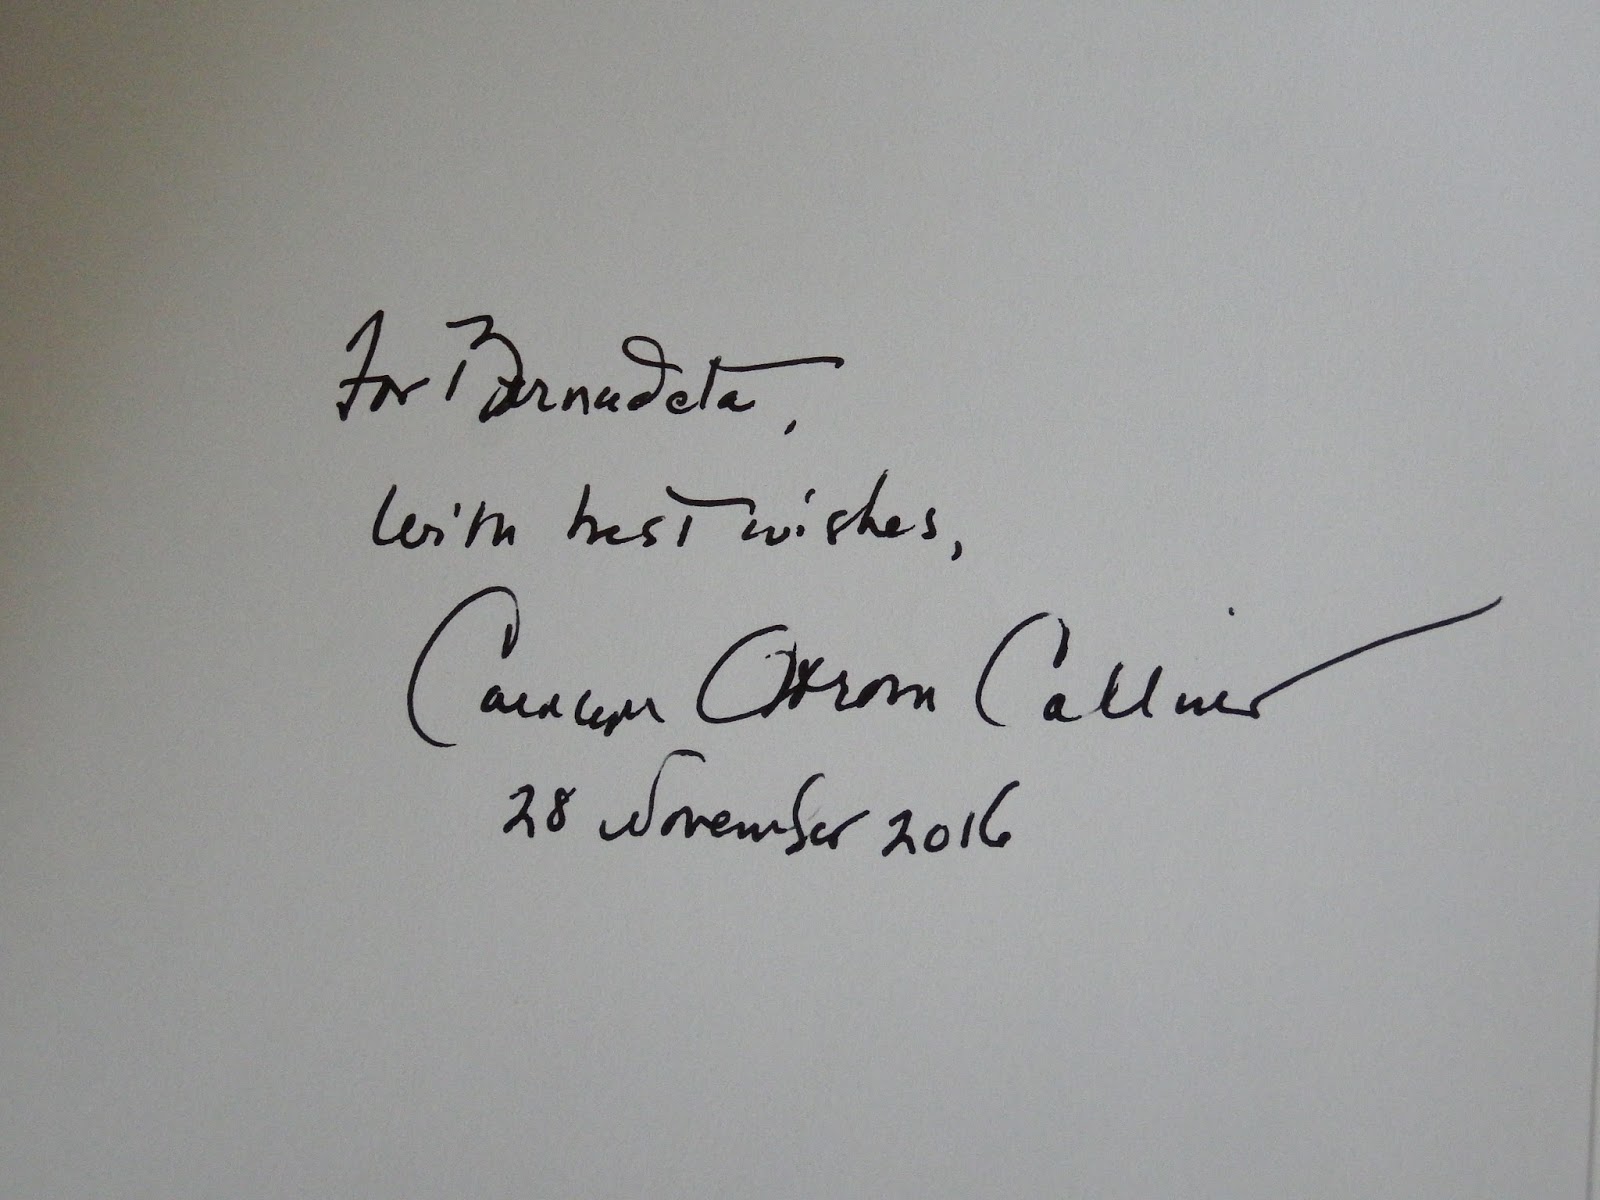 For Bernadeta,
With best wishes,
Callner
28 November 2016